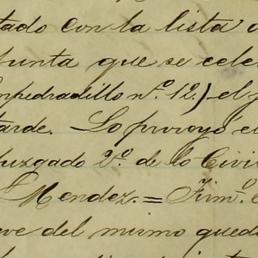 tado con la lista d
junta que se cele
mpedradillo nº. 12.) el j
tarde. Lo proveyó el
Juzgado 2º. de lo Civil
Mendez. = Firmº.
ve del mismo queda